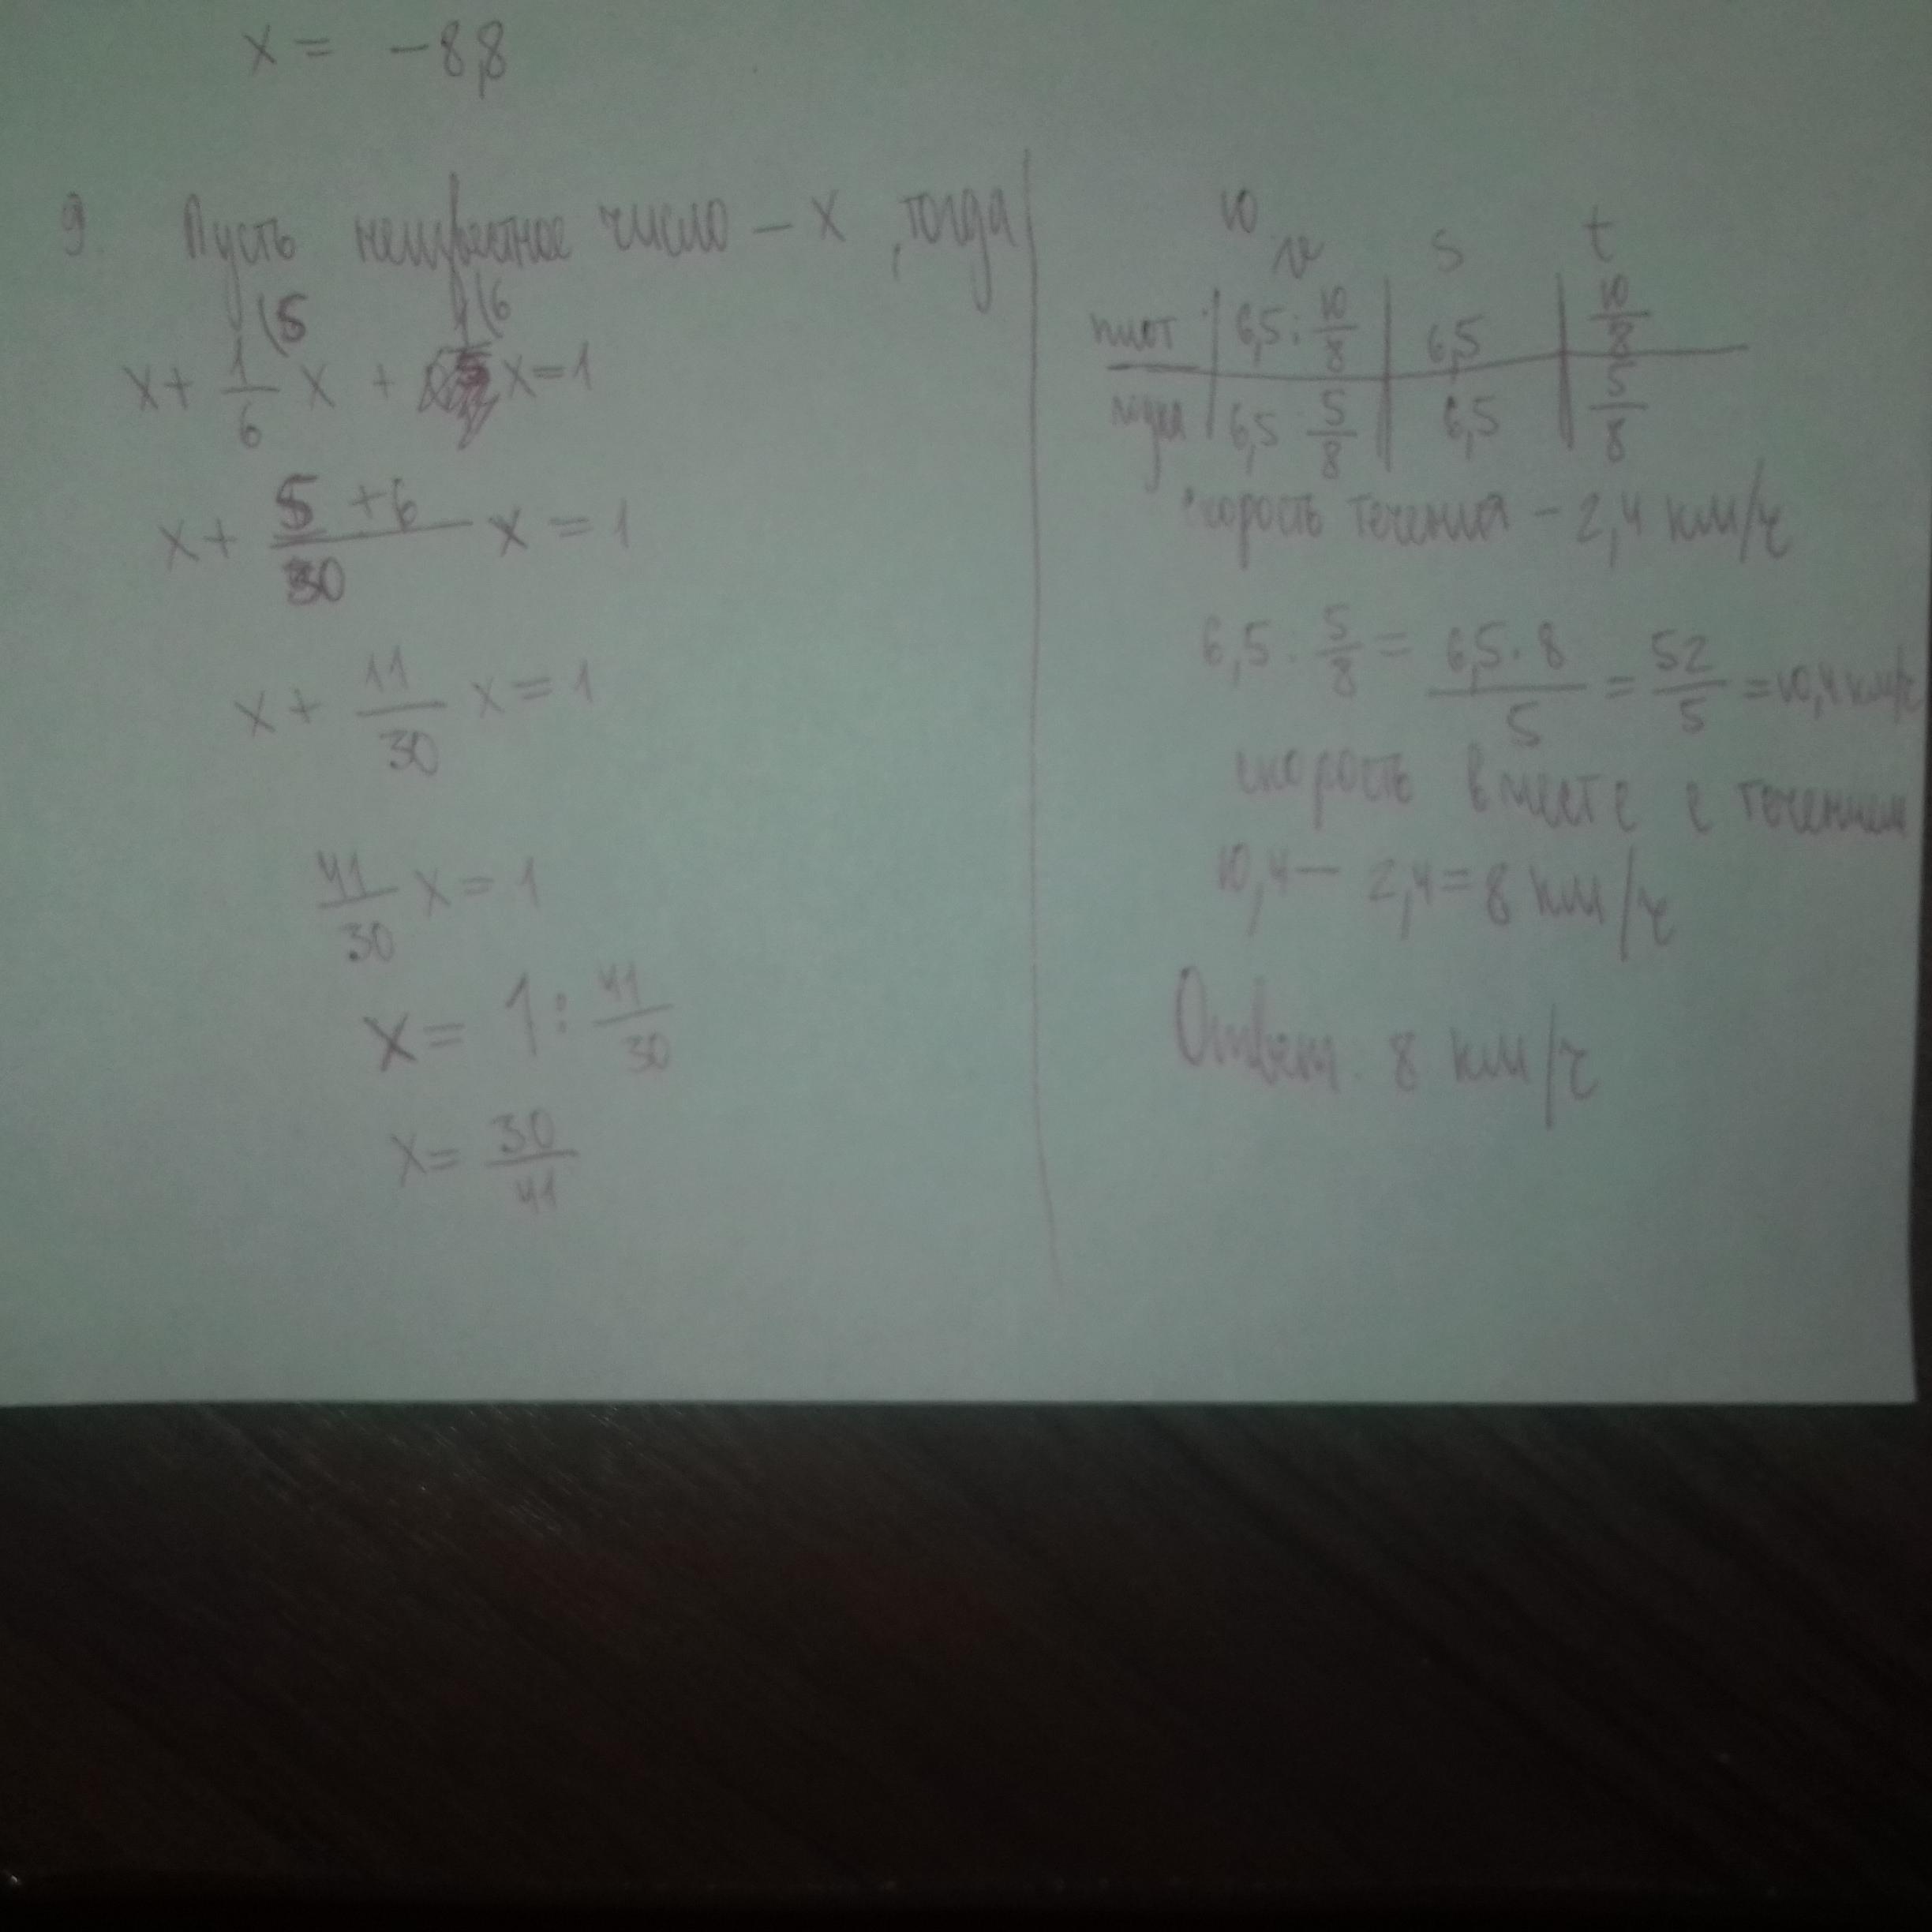 x = -8,8
9. Пусть неизвестное число - x, тогда
(5 (6
x + 1/6 x + x = 1
x + 5+6/30 x = 1
x + 11/30 x = 1
41/30 x = 1
x = 1 : 41/30
x = 30/41
10
v s t
плот 6,5 : 10/8 6,5 10/8
лодка 6,5 5/8 6,5 5/8
скорость течения - 2,4 км/ч
6,5 · 5/8 = 6,5 · 8/5 = 52/5 = 10,4 км/ч
скорость вместе с течением
10,4 - 2,4 = 8 км/ч
Ответ. 8 км/ч